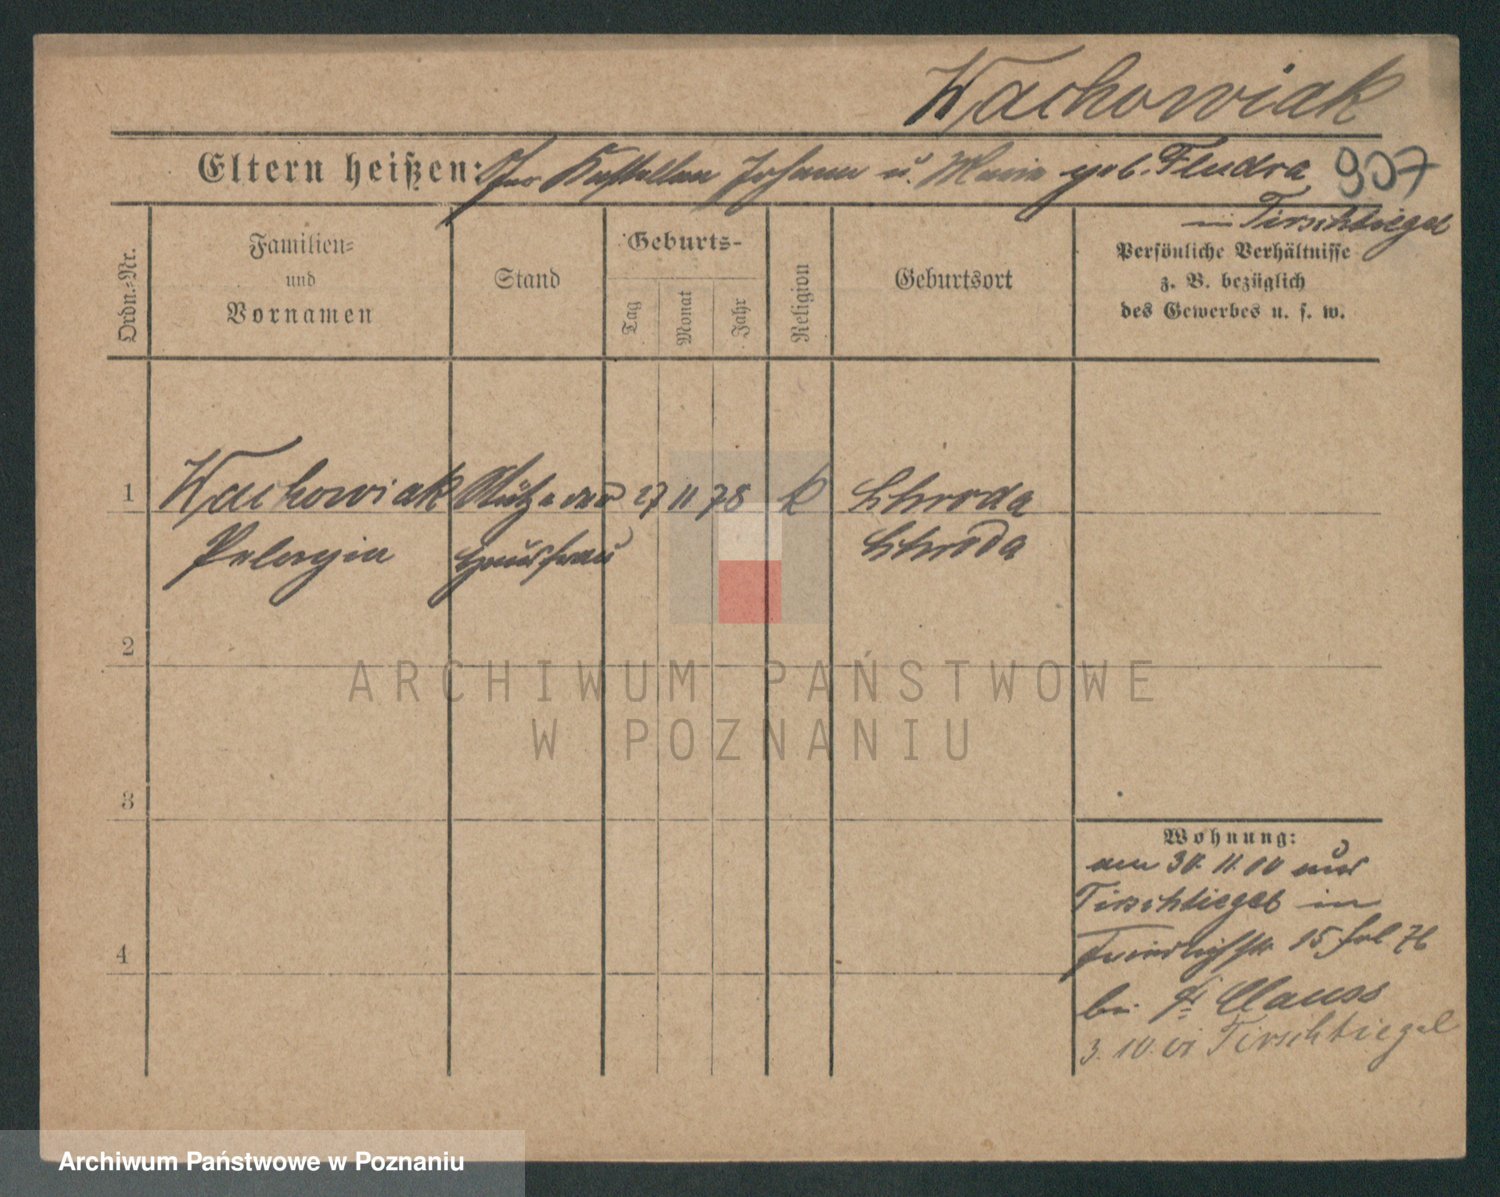 Wachowiak
Eltern heißen: Kastellan Johann u. Maria geb. Fludra 907
in Tirschtiegel
Ordn.-Nr.
Familien-
und
Vornamen
Stand
Geburts-
Tag
Monat
Jahr
Religion
Geburtsort
Persönliche Verhältnisse
z. B. bezüglich
des Gewerbes u. s. w.
1 Wachowiak Stütze der 27 11 78 k Schroda
Pelagia Hausfrau Schroda
2
3
4
Wohnung:
am 30.11.00 aus
Tirschtiegel in
Friedrichstr. 15 fol 76
bei Clauss
3.10.01 Tirschtiegel
ARCHIWUM PAŃSTWOWE
W POZNANIU
Archiwum Państwowe w Poznaniu